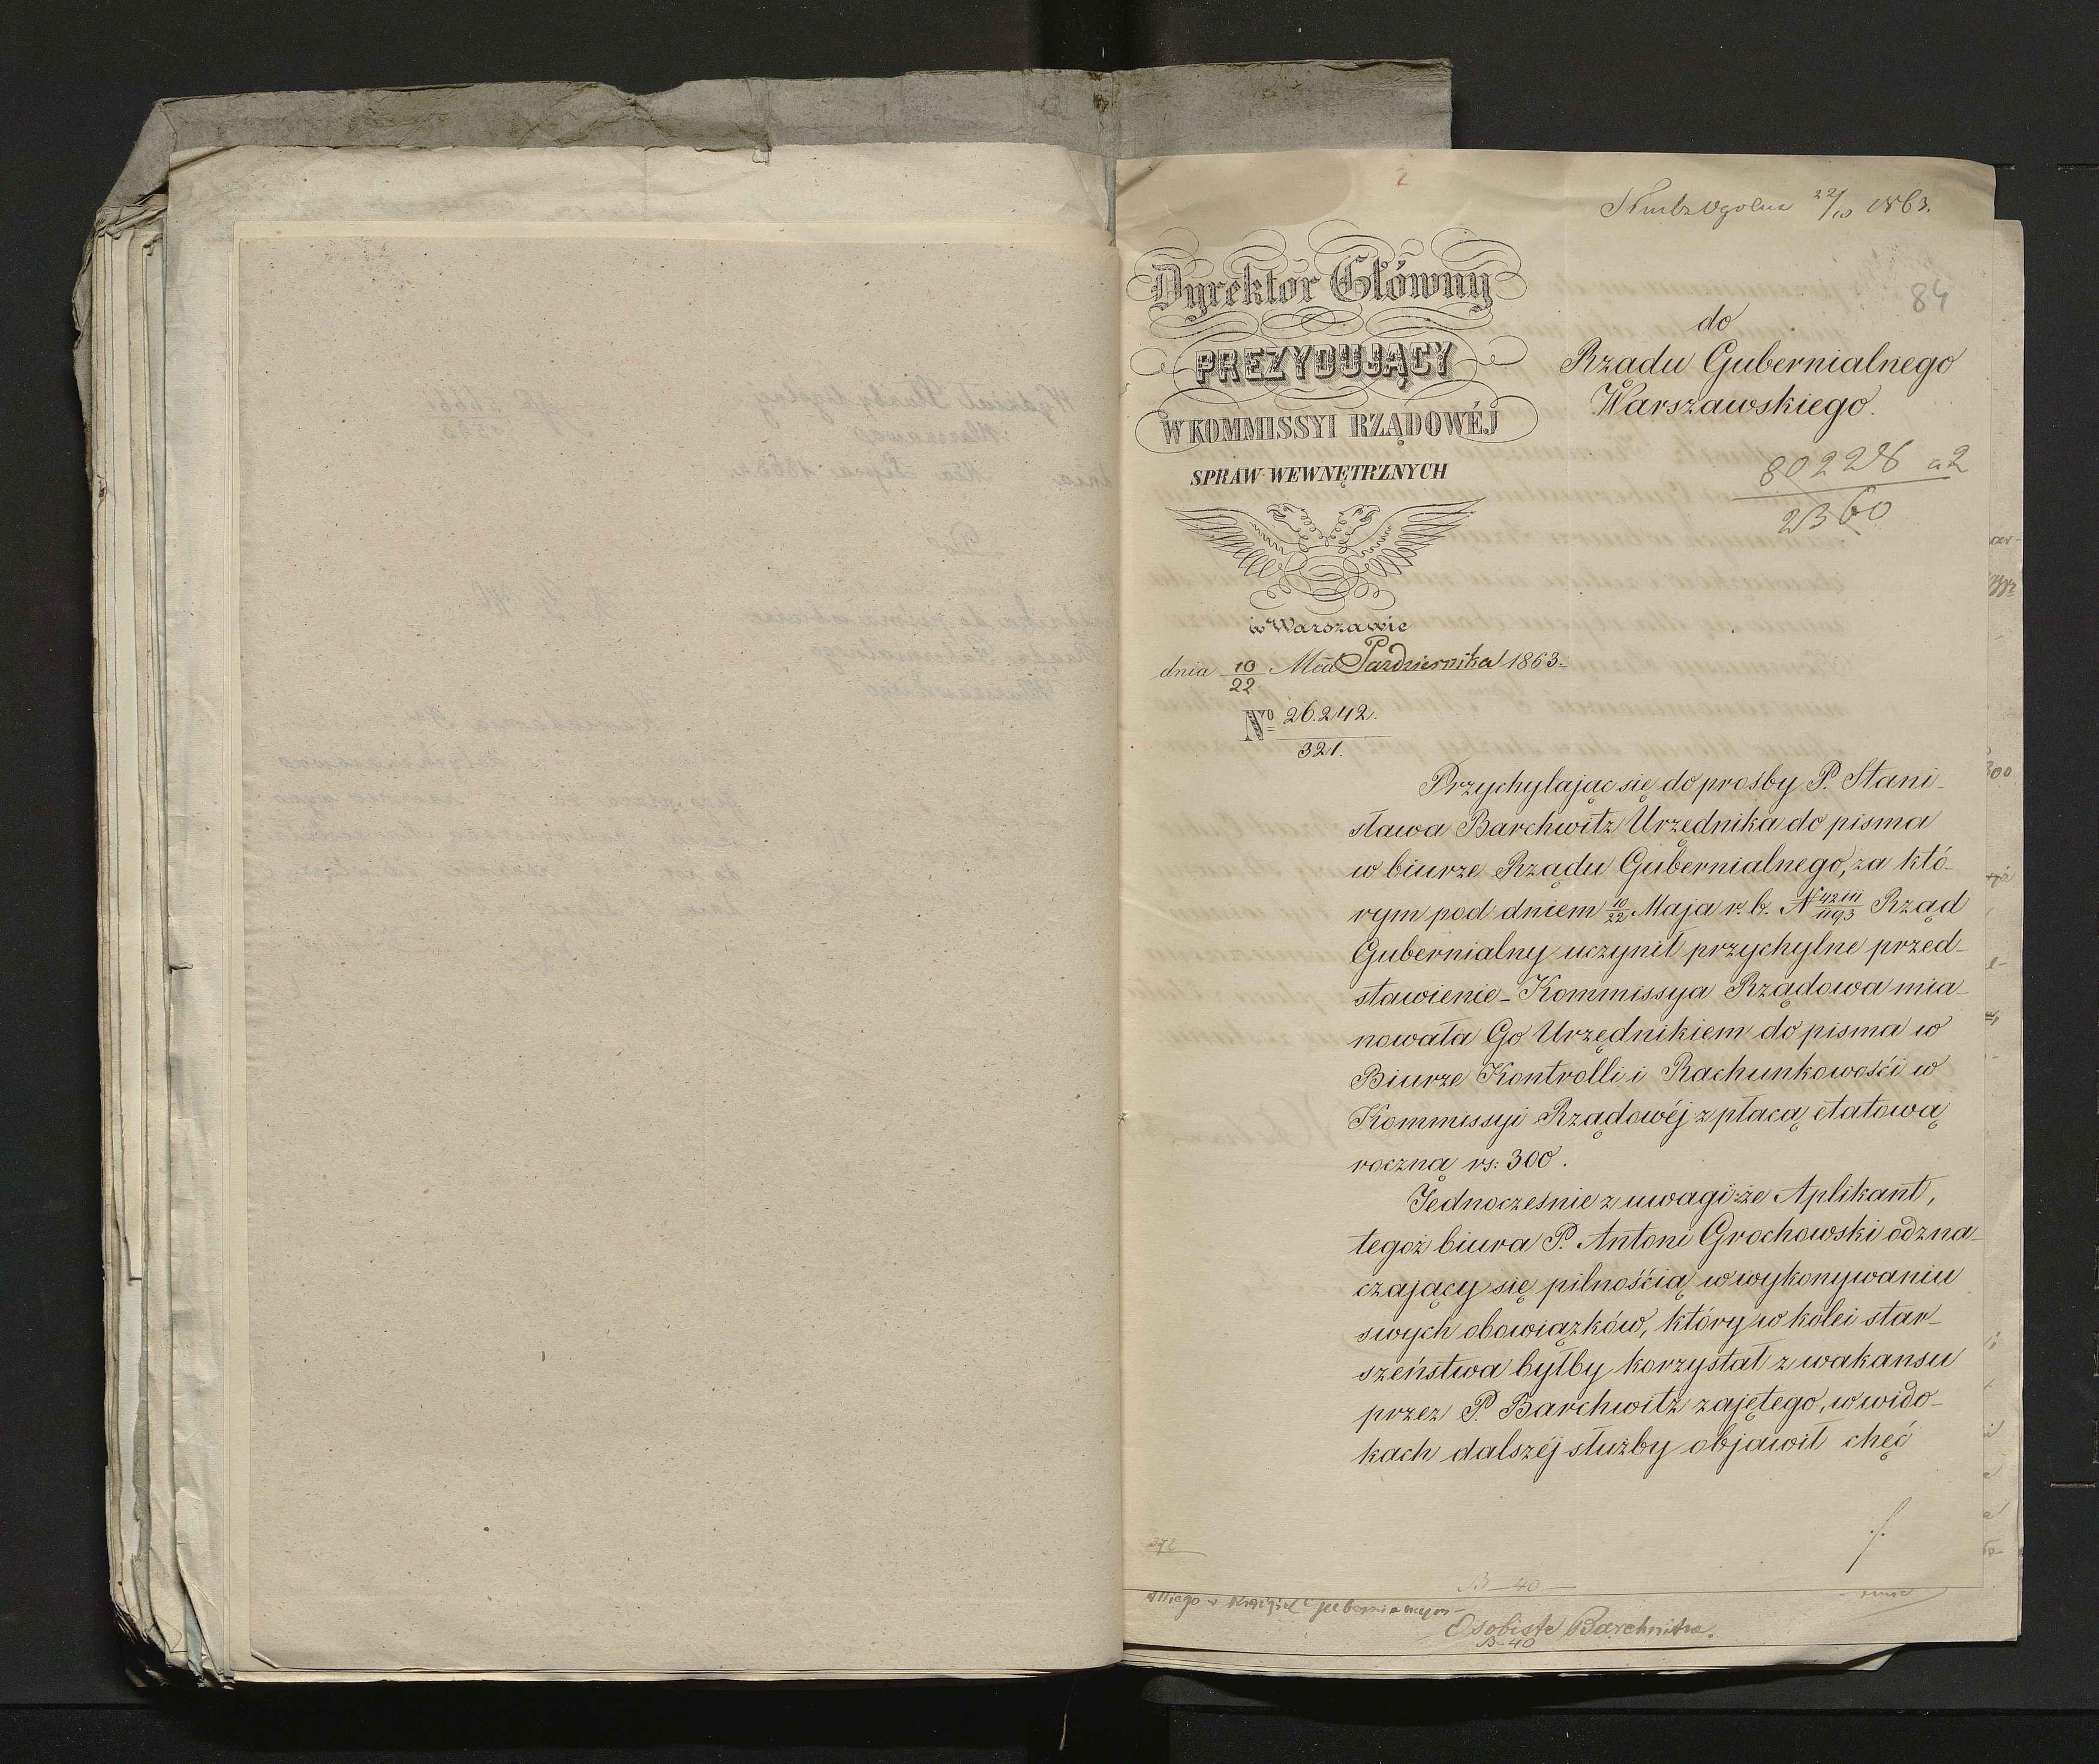 2
Służba Ogólna 22/10 1863.
84
Dyrektor Główny
PREZYDUJĄCY
W KOMMISSYI RZĄDOWÉJ
SPRAW WEWNĘTRZNYCH
w Warszawie
dnia 10/22 Mca Pazdziernika 1863.
No 26.242./321.
do
Rządu Gubernialnego
Warszawskiego.
80228 a2
2360
Przychylając się do prosby P. Stani-
sława Barchwitz Urzędnika do pisma
w biurze Rządu Gubernialnego, za któ-
rym pod dniem 10/22 Maja r. b. N 42111/1193 Rząd
Gubernialny uczynił przychylne przed-
stawienie – Kommissya Rządowa mia-
nowała Go Urzędnikiem do pisma w
Biurze Kontrolli i Rachunkowośći w
Kommissyi Rządowéj z płacą etatową
roczną rs: 300.
Jednocześnie z uwagi że Aplikant,
tegoż biura P. Antoni Grochowski odzna-
czający się pilnośćią w wykonywaniu
swych obowiązków, który w kolei star-
szeństwa byłby korzystał z wakansu
przez P. Barchwitz zajętego, w wido-
kach dalszéj służby objawił chęć
./.
B-40
Osobiste Barchwitza.
B-40